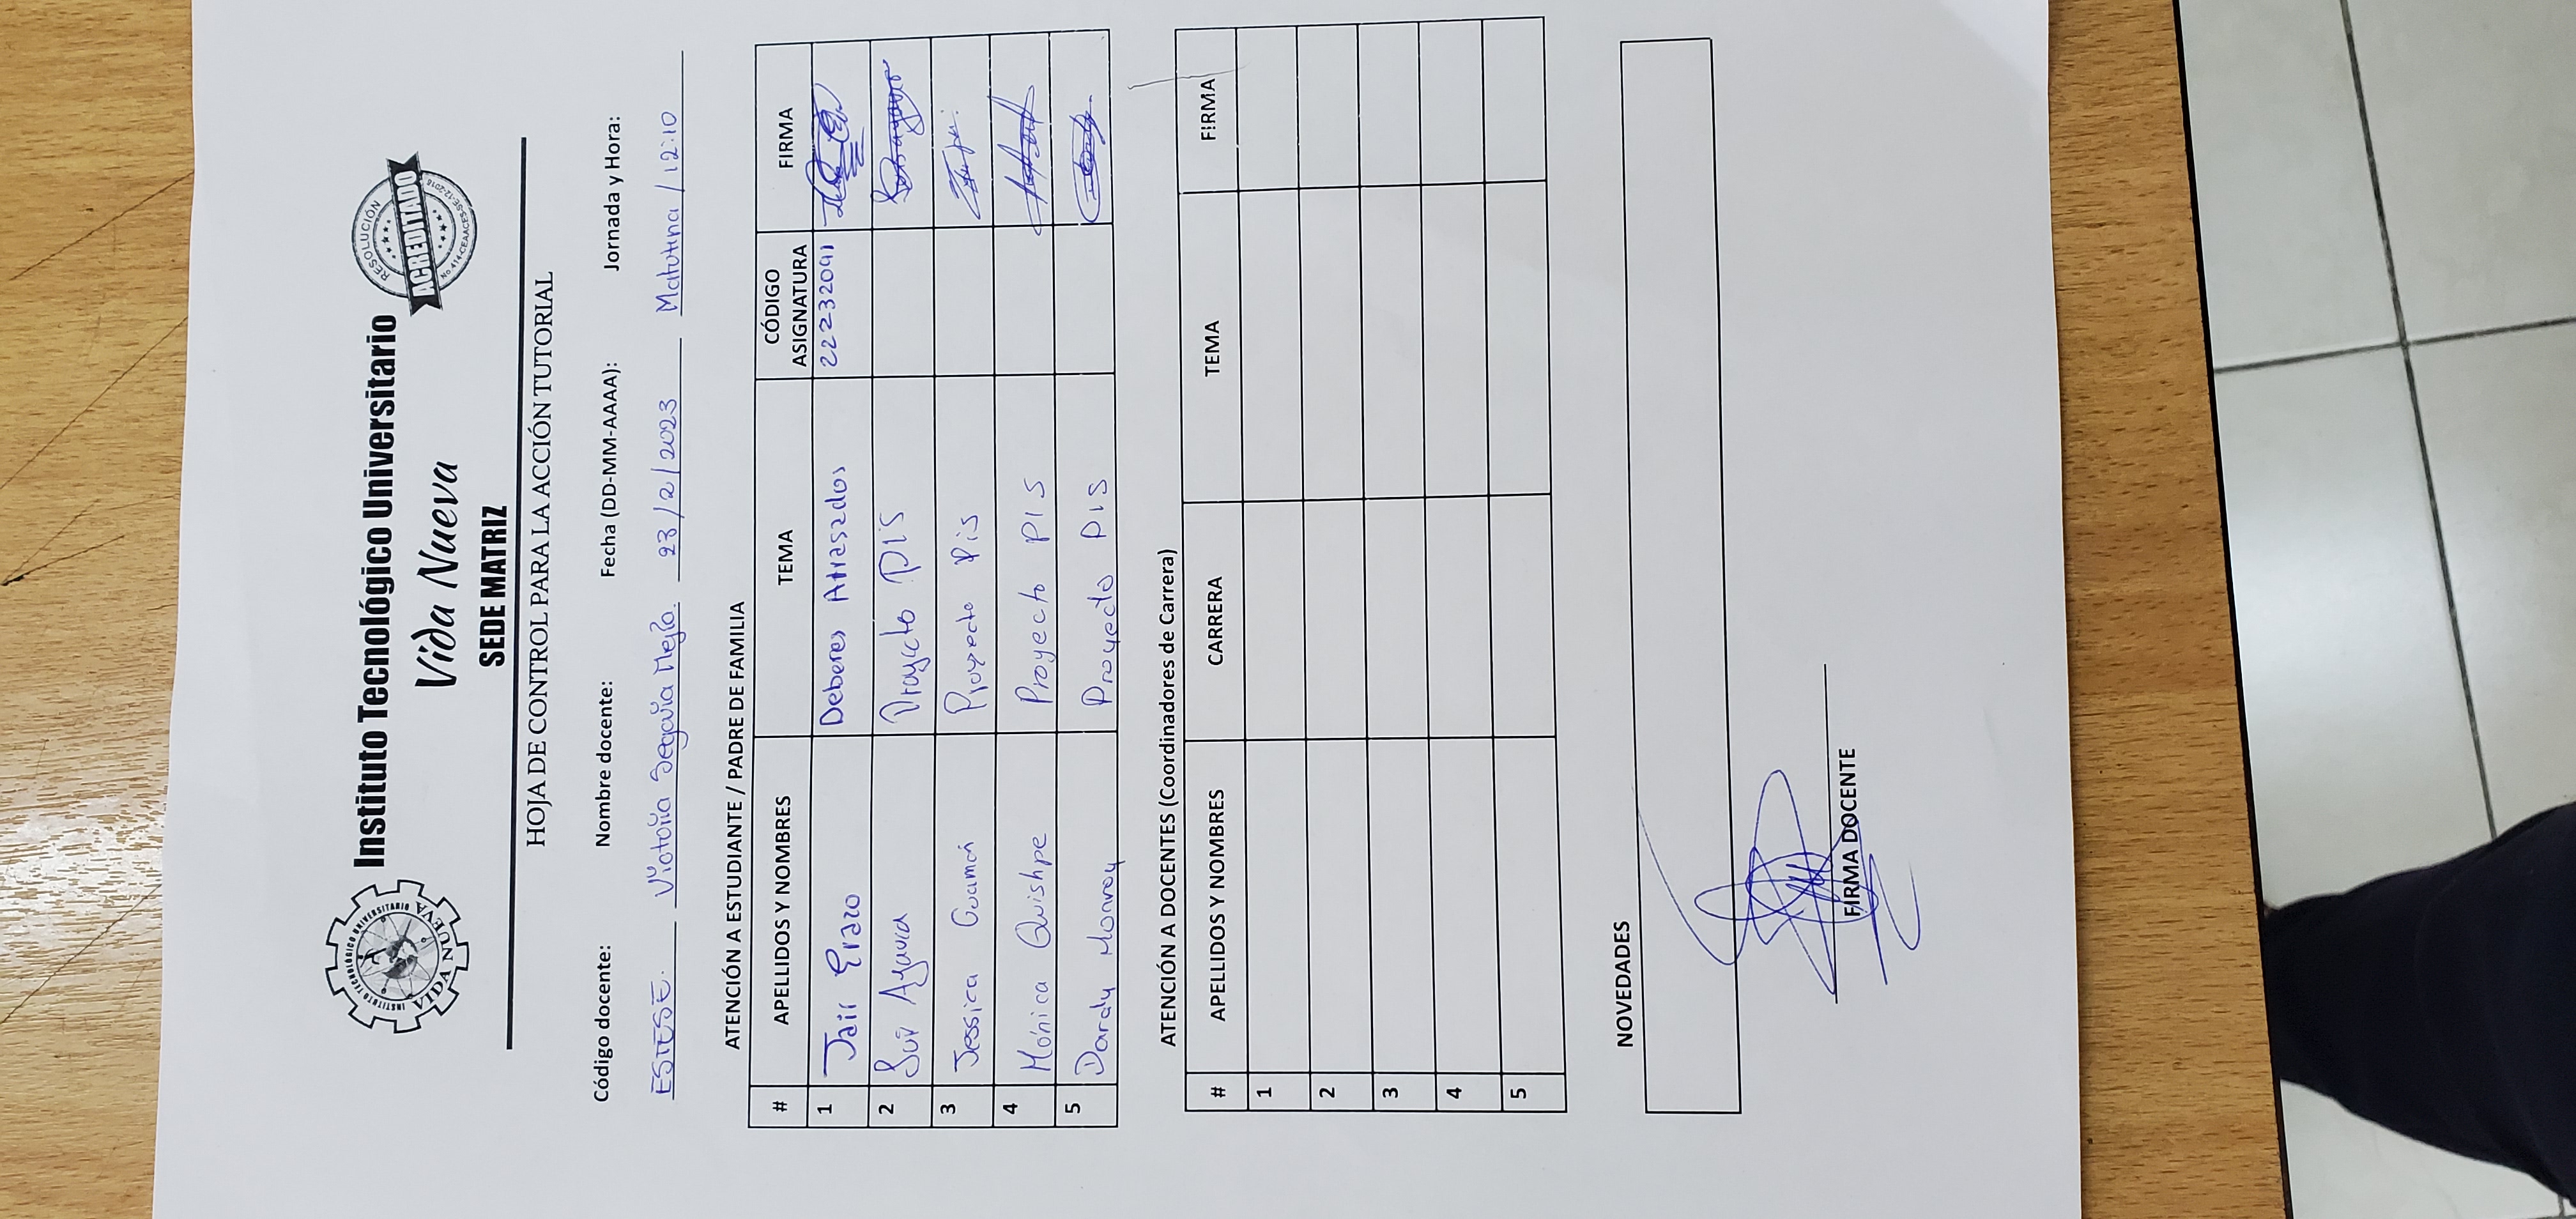 INSTITUTO TECNOLÓGICO UNIVERSITARIO
VIDA NUEVA
Instituto Tecnológico Universitario
Vida Nueva
SEDE MATRIZ
RESOLUCIÓN
ACREDITADO
No.414-CEAACES-SE-12-2018
HOJA DE CONTROL PARA LA ACCIÓN TUTORIAL
Código docente: Nombre docente: Fecha (DD-MM-AAAA): Jornada y Hora:
ESTESE. Victoria Segovia Mejía. 23/2/2023 Matutina / 12:10
ATENCIÓN A ESTUDIANTE / PADRE DE FAMILIA
# APELLIDOS Y NOMBRES TEMA CÓDIGO ASIGNATURA FIRMA
1 Jair Erazo Deberes Atrasados 22232091
2 Proyecto PIS
3 Jessica Guamán Proyecto Pis
4 Mónica Quishpe Proyecto PIS
5 Monroy Proyecto PIS
ATENCIÓN A DOCENTES (Coordinadores de Carrera)
# APELLIDOS Y NOMBRES CARRERA TEMA FIRMA
1
2
3
4
5
NOVEDADES
FIRMA DOCENTE